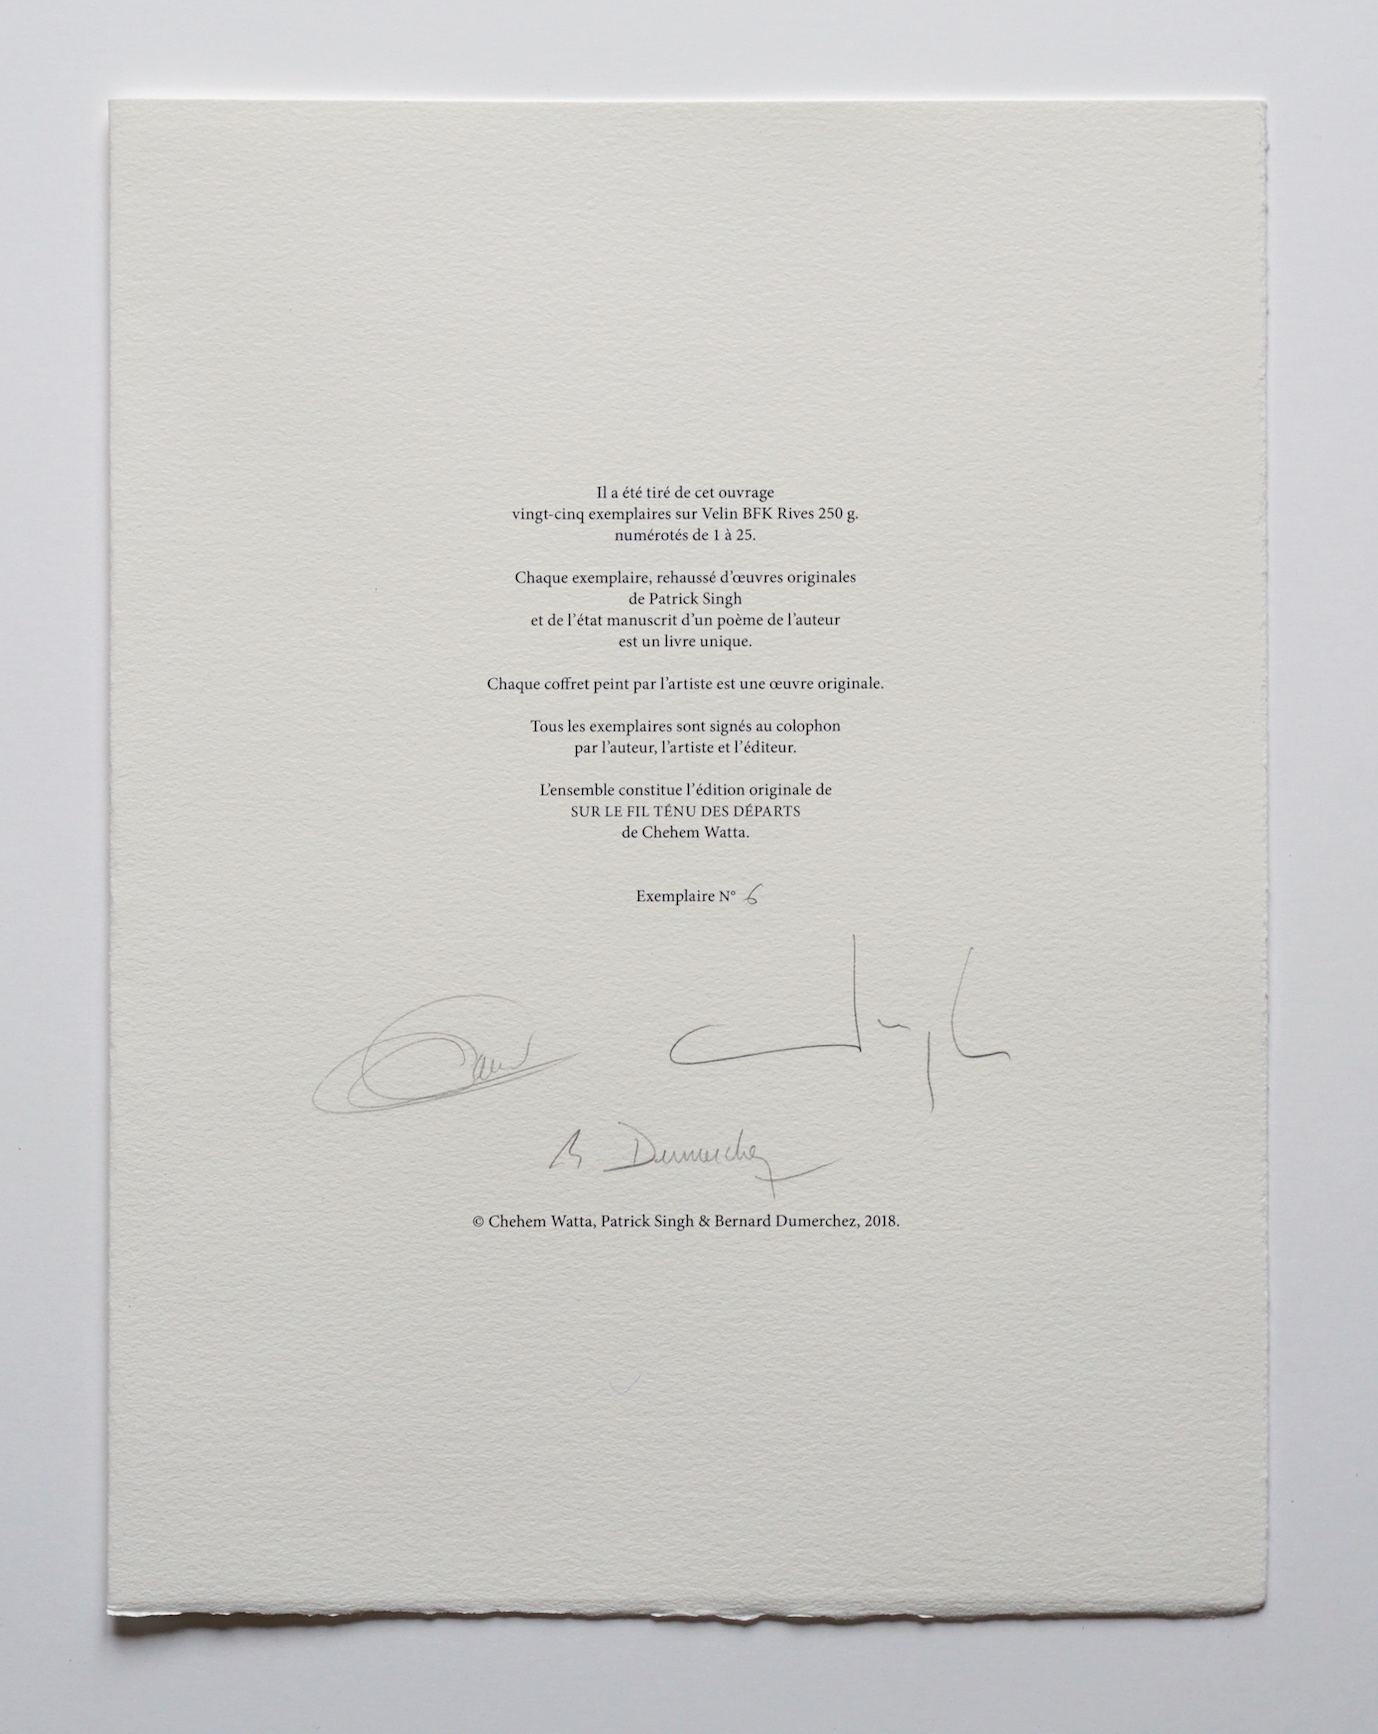 Il a été tiré de cet ouvrage
vingt-cinq exemplaires sur Velin BFK Rives 250 g.
numérotés de 1 à 25.
Chaque exemplaire, rehaussé d'œuvres originales
de Patrick Singh
et de l'état manuscrit d'un poème de l'auteur
est un livre unique.
Chaque coffret peint par l'artiste est une œuvre originale.
Tous les exemplaires sont signés au colophon
par l'auteur, l'artiste et l'éditeur.
L'ensemble constitue l'édition originale de
SUR LE FIL TÉNU DES DÉPARTS
de Chehem Watta.
Exemplaire N° 6
B Dumerchez
© Chehem Watta, Patrick Singh & Bernard Dumerchez, 2018.